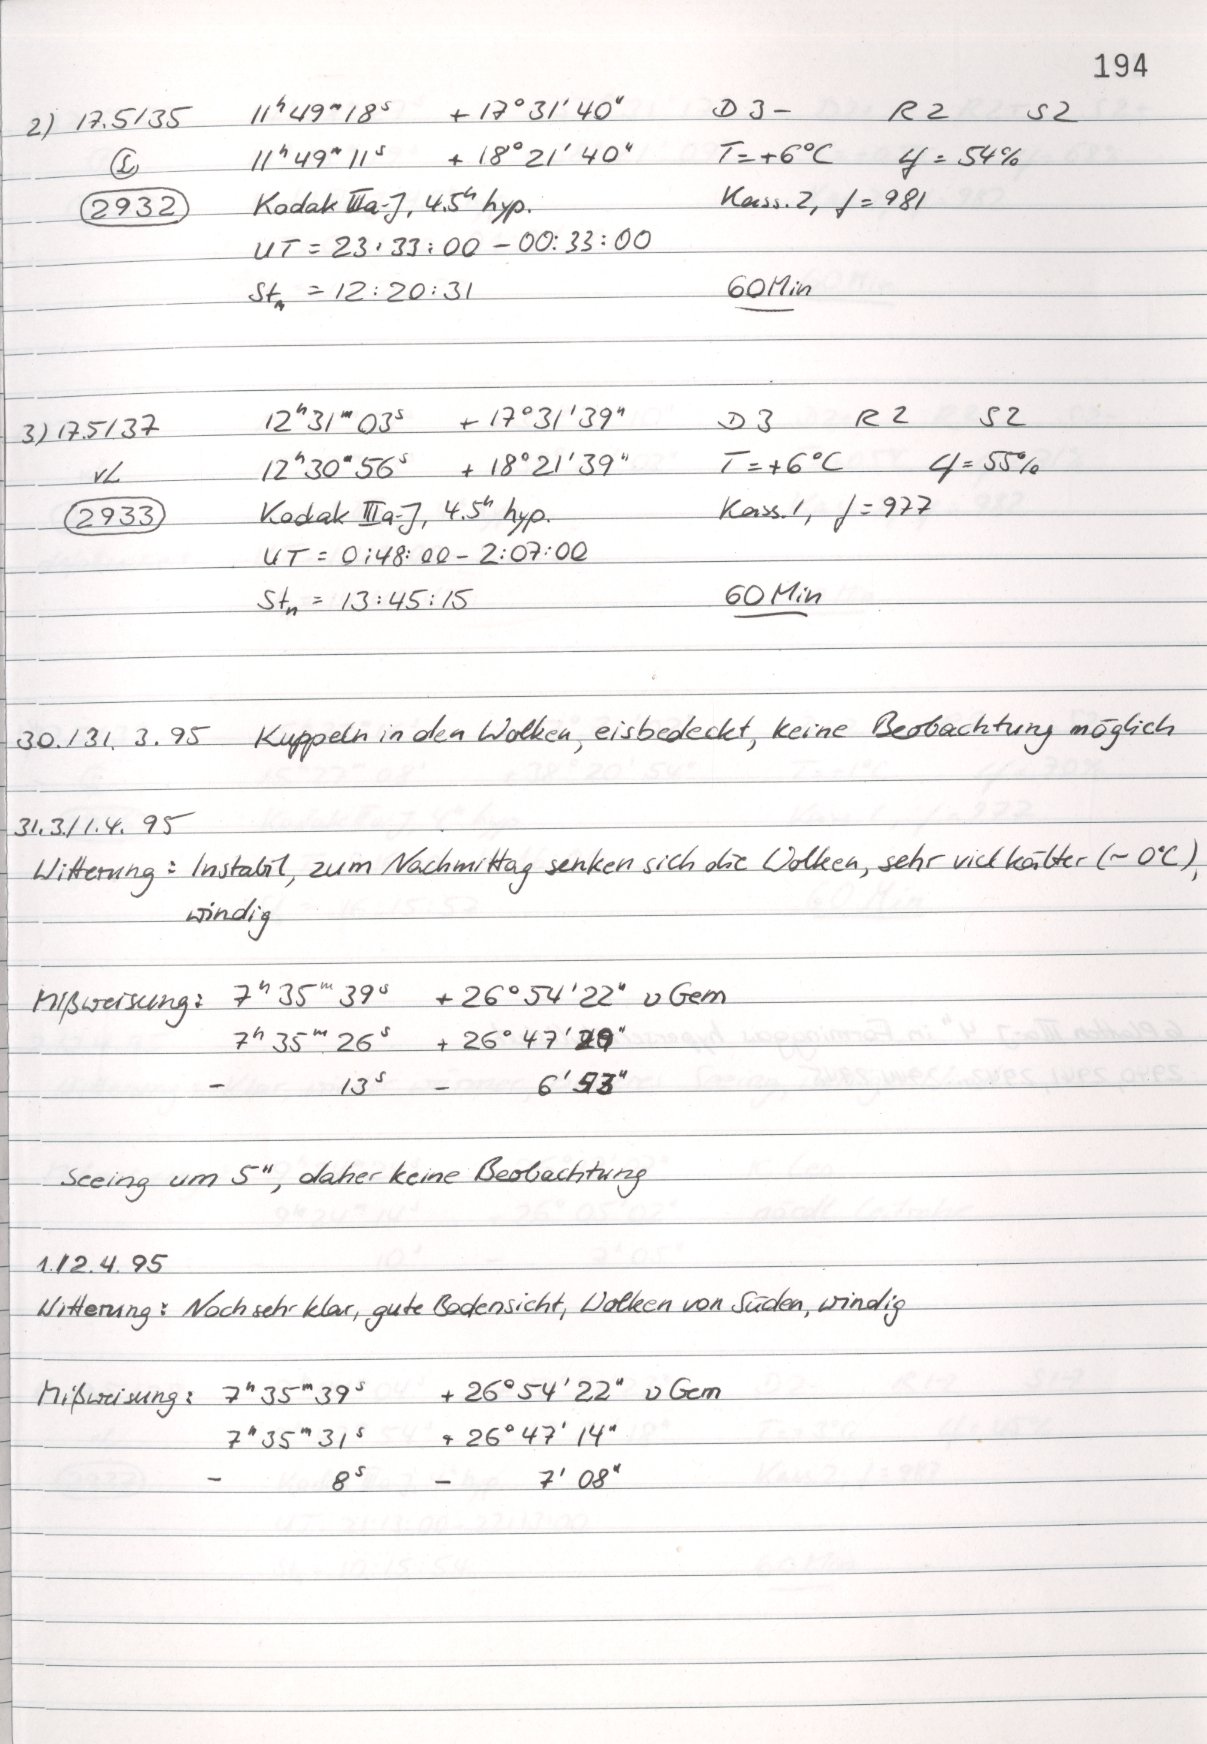 194
2) 17.5/35 11ʰ49ᵐ18ˢ +17°31'40" D3- R2 S2
11ʰ49ᵐ11ˢ +18°21'40" T=+6°C φ=54%
2932 Kodak IIIa-J, 4.5ʰ hyp. Kass.2, f=981
UT = 23:33:00 - 00:33:00
Stₙ = 12:20:31 60 Min
3) 17.5/37 12ʰ31ᵐ03ˢ +17°31'39" D3 R2 S2
vL 12ʰ30ᵐ56ˢ +18°21'39" T=+6°C φ=55%
2933 Kodak IIIa-J, 4.5ʰ hyp. Kass.1, f=977
UT = 0:48:00 - 2:07:00
Stₙ = 13:45:15 60 Min
30./31. 3.95 Kuppeln in den Wolken, eisbedeckt, keine Beobachtung möglich
31.3./1.4. 95
Witterung: Instabil, zum Nachmittag senken sich die Wolken, sehr viel kälter (~0°C),
windig
Mißweisung: 7ʰ35ᵐ39ˢ +26°54'22" υ Gem
7ʰ35ᵐ26ˢ +26°47'29"
- 13ˢ - 6'53"
Seeing um 5", daher keine Beobachtung
1./2.4.95
Witterung: Noch sehr klar, gute Bodensicht, Wolken von Süden, windig
Mißweisung: 7ʰ35ᵐ39ˢ +26°54'22" υ Gem
7ʰ35ᵐ31ˢ +26°47'14"
- 8ˢ - 7'08"